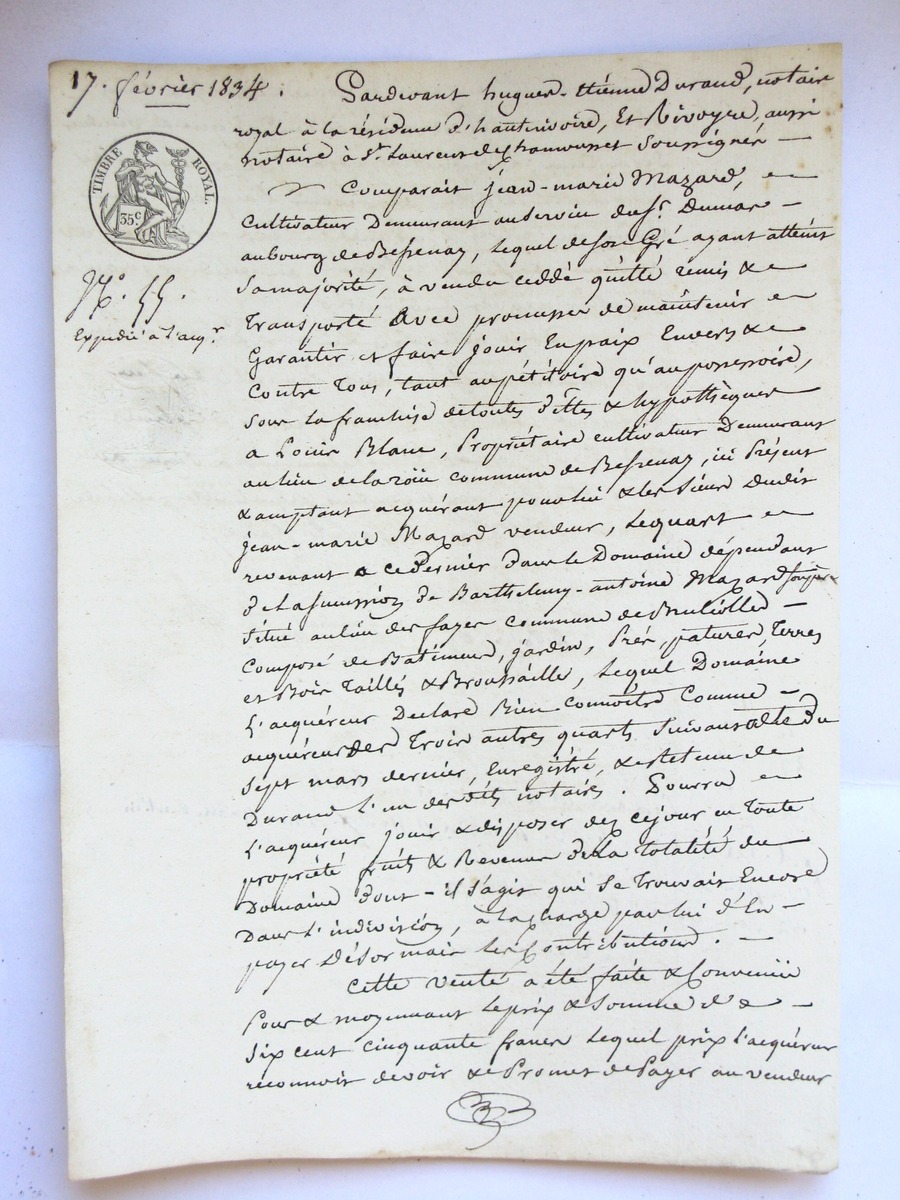 17. février 1834.
Pardevant hugues-étienne Durand, notaire
royal à la résidence d'hauterivoire, Et Rivoyre, aussi
notaire à St. Laurent de Chamousset Soussignés —
TIMBRE ROYAL.
35c
Comparait jean-marie Mazard,
cultivateur Demeurant au Service du Sr. Dumas —
au bourg de Bessenay, lequel de son Gré ayant atteint
sa majorité, à vendu ceddé quitté remis & 
N.o 55.
Expédié à l'acqr.
Transporté avec promesse de maintenir
Garantir et faire jouir En paix Envers &
Contre Tous, tant au pétitoire qu'au possessoire,
sous la franchise de toutes dettes & hypothèques
a Louis Blanc, Propriétaire cultivateur Demeurant
au lieu de la roüi commune de Bessenay, ici Présent
& acceptant acquérant pour lui & les siens dudit
jean-marie Mazard vendeur, le quart
revenant a ce dernier dans le Domaine dépendant
de la succession de Barthelemy-antoine Mazard son père
situé au lieu des fayes commune de Brullioles —
composé de Bâtimens, jardin, Prés, patures, Terres
et Bois Taillés & Broussaille, lequel Domaine
l'acquéreur Declare Bien connoître Comme —
acquéreur des Trois autres quarts Suivant acte du
sept mars dernier, Enregistré, & est tenu de
Durand l'un desdits notaires. Pourra
l'acquéreur jouir & disposer dez ce jour en Toute
propriété fruits & Revenus de La Totalité du
Domaine dont-il s'agit qui Se Trouvait Encore
Dans l'indivision, à la charge par lui d'En —
payer Désormais les Contributions. —
Cette vente a été faite & Convenüe
Pour & moyennant le prix & Somme de —
Six cent cinquante francs lequel prix l'acquéreur
reconnoit devoir & Promet de Payer au vendeur